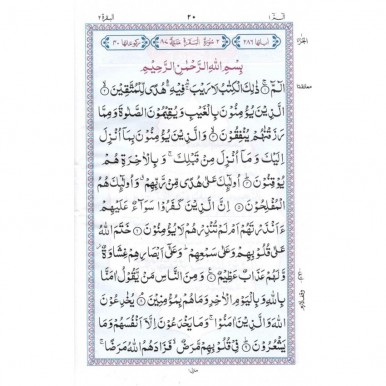 البقرة ٢ ٢٠ الٓمّٓ ١
اٰیاتها ٢٨٦ ٢ سُوْرَةُ الْبَقَرَةِ مَدَنِيَّةٌ ٨٧ رکوعاتها ٤٠
بِسْمِ اللهِ الرَّحْمٰنِ الرَّحِيْمِ
الٓمّٓ ۝ ذٰلِكَ الْكِتٰبُ لَا رَيْبَ ۛ فِيْهِ ۛ هُدًى لِّلْمُتَّقِيْنَ ۝
الَّذِيْنَ يُؤْمِنُوْنَ بِالْغَيْبِ وَيُقِيْمُوْنَ الصَّلٰوةَ وَمِمَّا
رَزَقْنٰهُمْ يُنْفِقُوْنَ ۝ وَالَّذِيْنَ يُؤْمِنُوْنَ بِمَآ اُنْزِلَ
اِلَيْكَ وَمَآ اُنْزِلَ مِنْ قَبْلِكَ ۚ وَبِالْاٰخِرَةِ هُمْ
يُوْقِنُوْنَ ۝ اُولٰٓئِكَ عَلٰى هُدًى مِّنْ رَّبِّهِمْ ۙ وَاُولٰٓئِكَ هُمُ
الْمُفْلِحُوْنَ ۝ اِنَّ الَّذِيْنَ كَفَرُوْا سَوَآءٌ عَلَيْهِمْ
ءَاَنْذَرْتَهُمْ اَمْ لَمْ تُنْذِرْهُمْ لَا يُؤْمِنُوْنَ ۝ خَتَمَ اللهُ
عَلٰى قُلُوْبِهِمْ وَعَلٰى سَمْعِهِمْ ۭ وَعَلٰٓى اَبْصَارِهِمْ غِشَاوَةٌ ۡ
وَّلَهُمْ عَذَابٌ عَظِيْمٌ ۝ وَمِنَ النَّاسِ مَنْ يَّقُوْلُ اٰمَنَّا
بِاللهِ وَبِالْيَوْمِ الْاٰخِرِ وَمَا هُمْ بِمُؤْمِنِيْنَ ۝ يُخٰدِعُوْنَ
اللهَ وَالَّذِيْنَ اٰمَنُوْا ۚ وَمَا يَخْدَعُوْنَ اِلَّآ اَنْفُسَهُمْ وَمَا
يَشْعُرُوْنَ ۝ فِيْ قُلُوْبِهِمْ مَّرَضٌ ۙ فَزَادَهُمُ اللهُ مَرَضًا ۚ